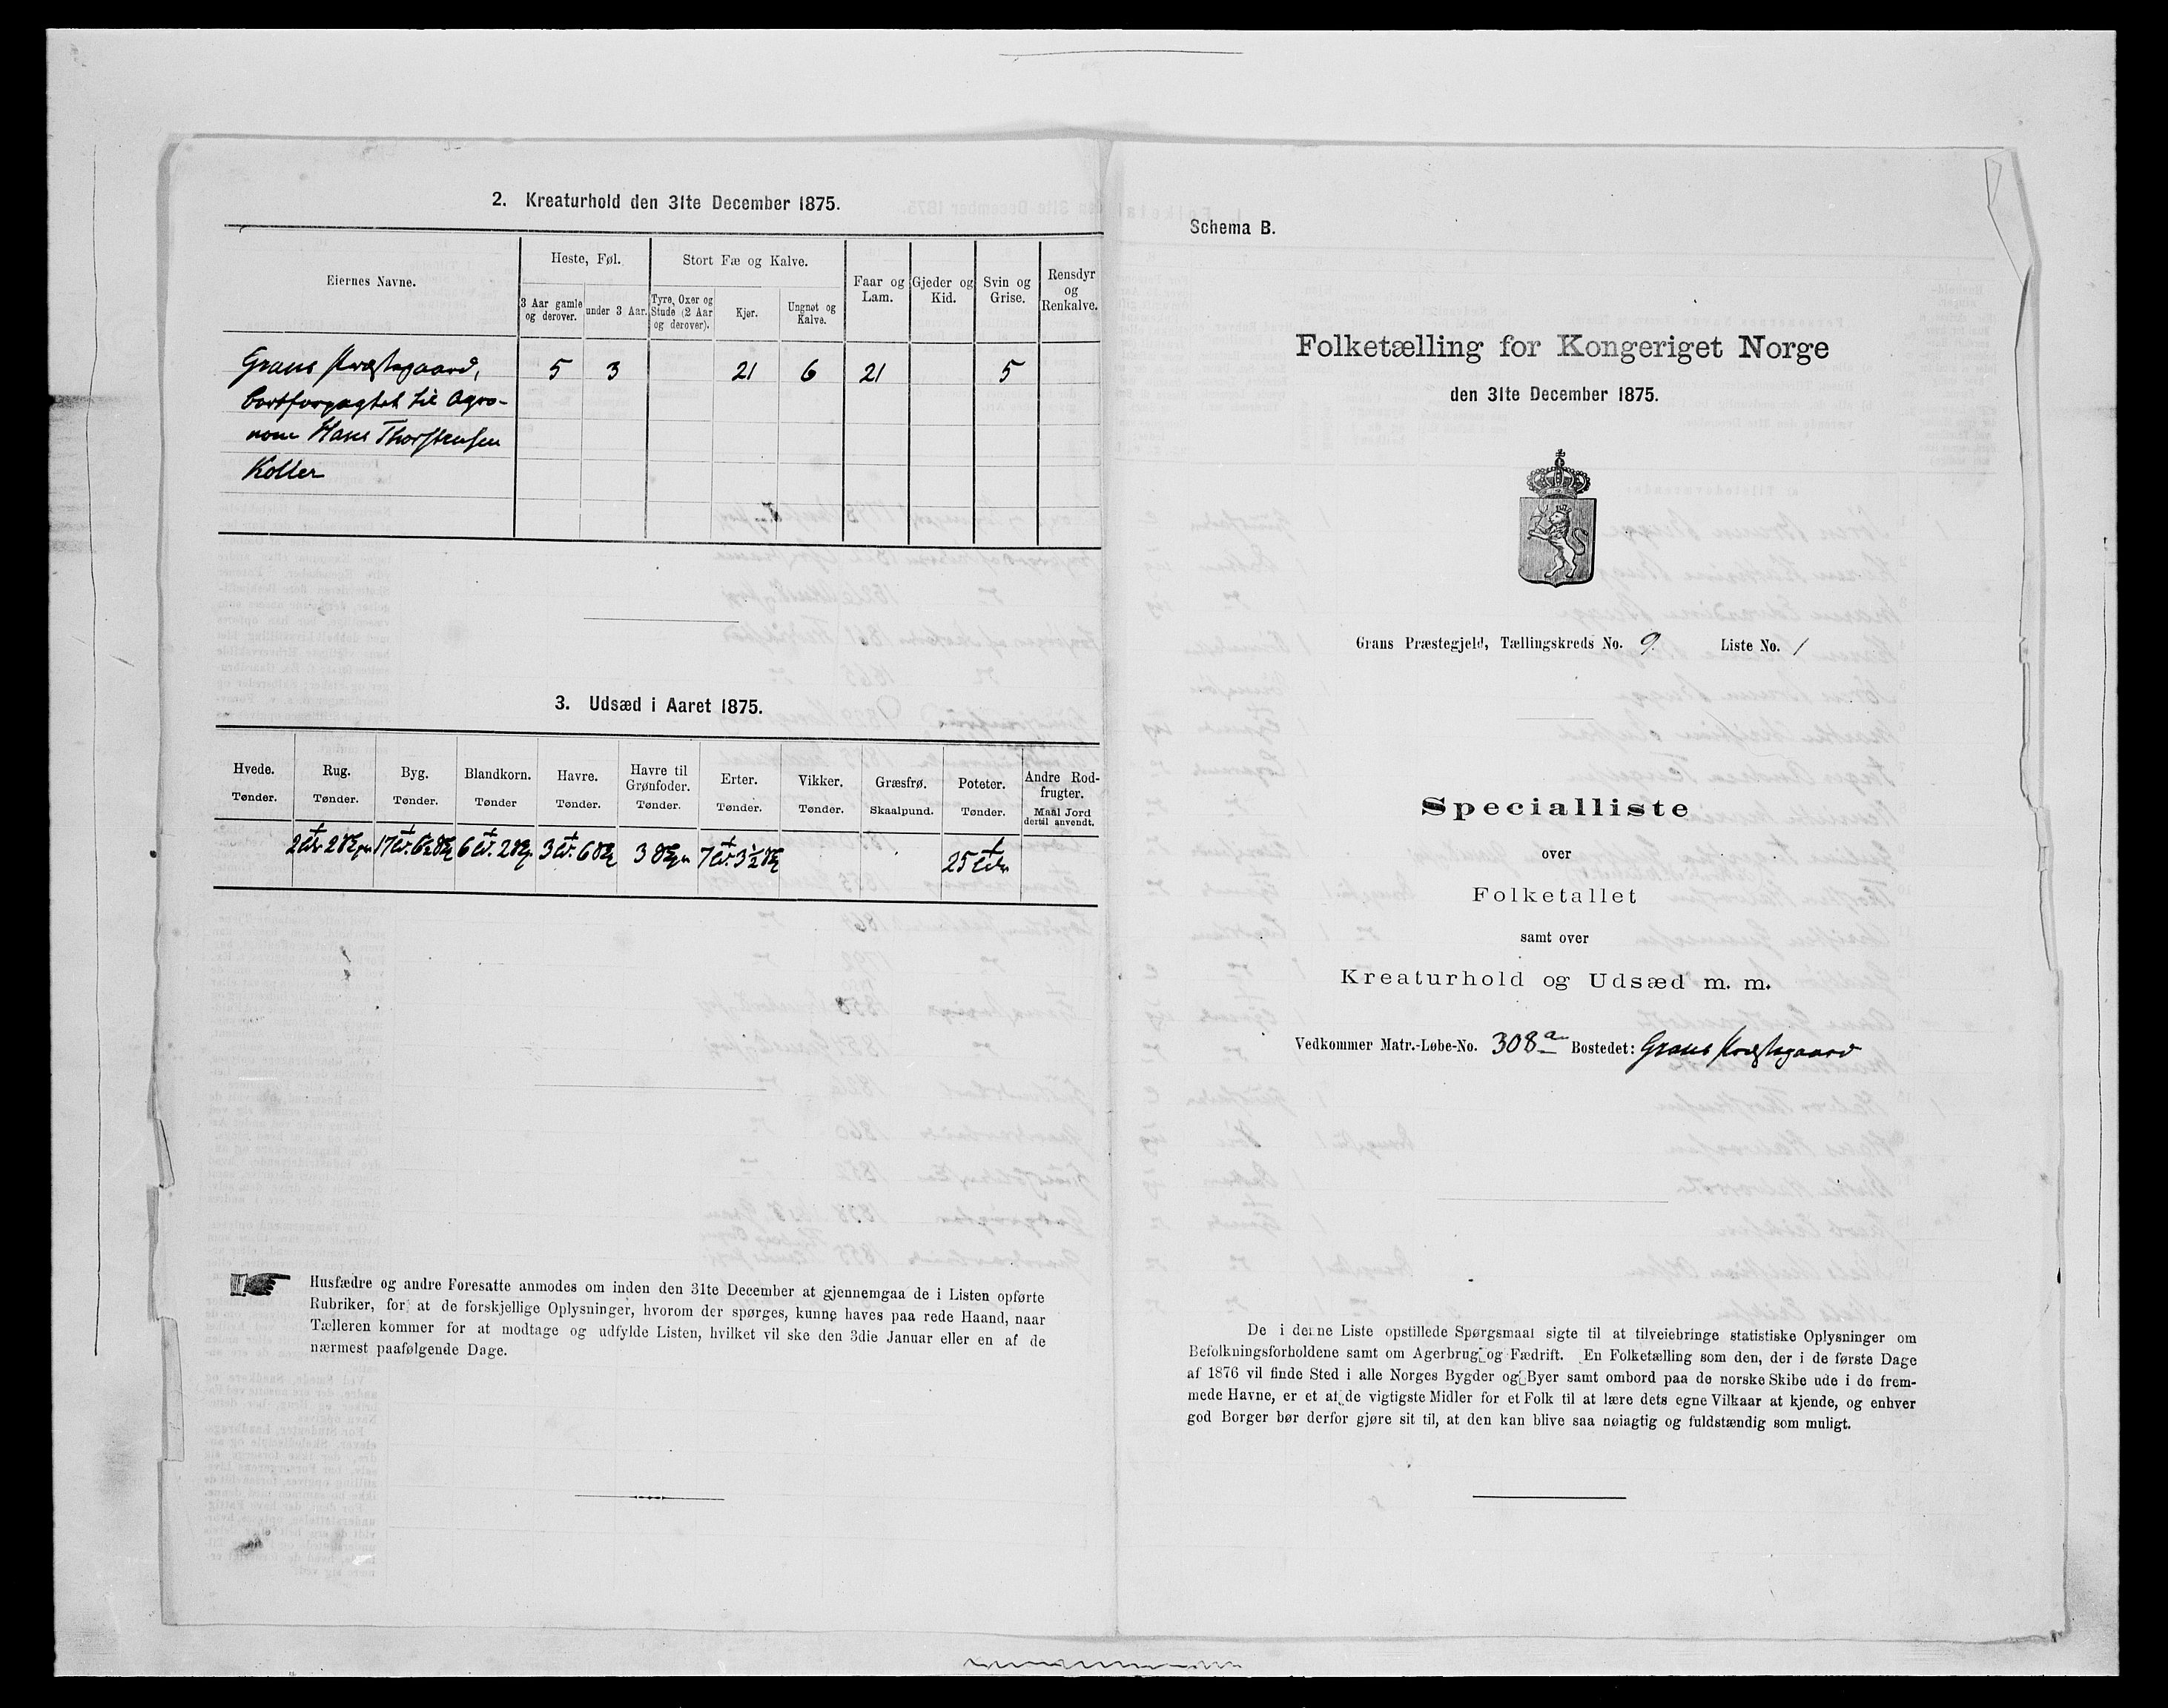 2. Kreaturhold den 31te December 1875.
Eiernes Navne.
Heste, Føl.
Stort Fæ og Kalve.
Faar og Lam.
Gjeder og Kid.
Svin og Grise.
Rensdyr og Renkalve.
3 Aar gamle og derover.
under 3 Aar.
Tyre, Oxer og Stude (2 Aar og derover).
Kjør.
Ungnøt og Kalve.
Grans Præstegaard, 5 3 21 6 21 5
bortforpagtet til Agro-
nom Hans Thorstensen
Koller
3. Udsæd i Aaret 1875.
Hvede. Rug. Byg. Blandkorn. Havre. Havre til Grønfoder. Erter. Vikker. Græsfrø. Poteter. Andre Rod-frugter.
Tønder. Tønder. Tønder. Tønder Tønder. Tønder. Tønder. Tønder. Skaalpund. Tønder. Maal Jord dertil anvendt.
Husfædre og andre Foresatte anmodes om inden den 31te December at gjennemgaa de i Listen opførte
Rubriker, for at de forskjellige Oplysninger, hvorom der spørges, kunne haves paa rede Haand, naar
Tælleren kommer for at modtage og udfylde Listen, hvilket vil ske den 3die Januar eller en af de
nærmest paafølgende Dage.
Schema B.
Folketælling for Kongeriget Norge
den 31te December 1875.
Grans Præstegjeld, Tællingskreds No. 9. Liste No. 1
Specialliste
over
Folketallet
samt over
Kreaturhold og Udsæd m. m.
Vedkommer Matr.-Løbe-No. 308a Bostedet: Grans Præstegaard
De i denne Liste opstillede Spørgsmaal sigte til at tilveiebringe statistiske Oplysninger om
Befolkningsforholdene samt om Agerbrug og Fædrift. En Folketælling som den, der i de første Dage
af 1876 vil finde Sted i alle Norges Bygder og Byer samt ombord paa de norske Skibe ude i de frem-
mede Havne, er et af de vigtigste Midler for et Folk til at lære dets egne Vilkaar at kjende, og enhver
god Borger bør derfor gjøre sit til, at den kan blive saa nøiagtig og fuldstændig som muligt.